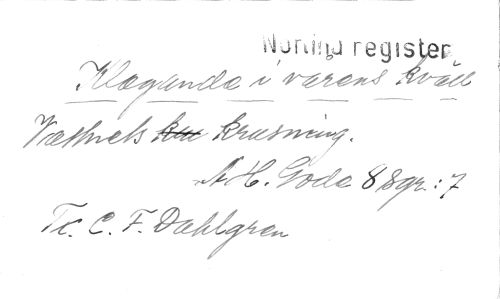 Nordiną register
Klagande i vårens kväll
Vattnets krusning.
A. H. Goda 8 Sgr.: 7
Tc. C. F. Dahlgren